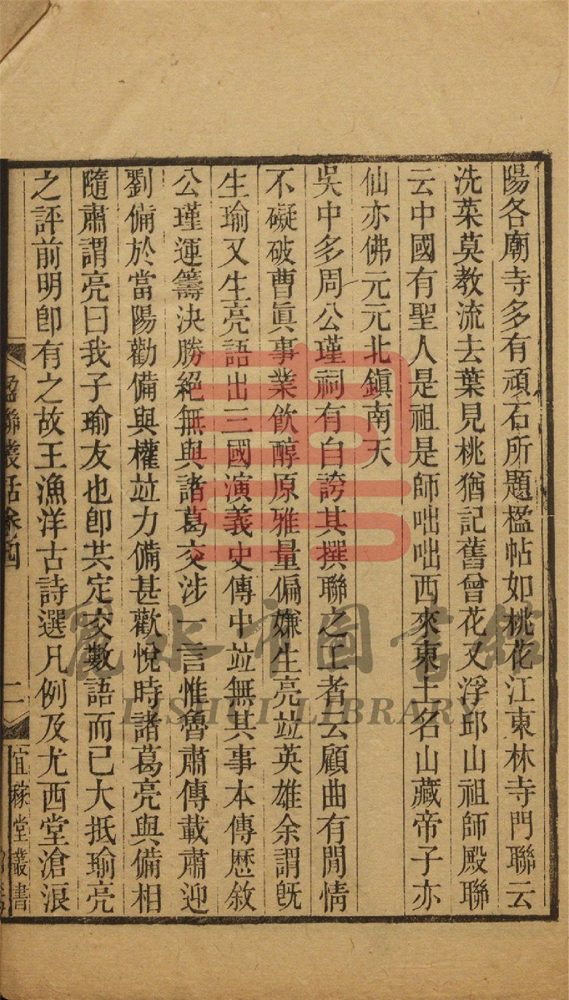 陽各廟寺多有頑石所題楹帖如桃花江東林寺門聯云
洗菜莫教流去葉見桃猶記舊曾花又浮邱山祖師殿聯
云中國有聖人是祖是師咄咄西來東土名山藏帝子亦
仙亦佛元元北鎮南天
吳中多周公瑾祠有自誇其撰聯之工者云顧曲有閒情
不礙破曹眞事業飲醇原雅量偏嫌生亮竝英雄余謂旣
生瑜又生亮語出三國演義史傳中竝無其事本傳歴敘
公瑾運籌決勝絕無與諸葛交涉一言惟魯肅傳載肅迎
劉備於當陽勸備與權竝力備甚歡悅時諸葛亮與備相
隨肅謂亮曰我子瑜友也卽共定交數語而已大抵瑜亮
之評前明卽有之故王漁洋古詩選凡例及尤西堂滄浪
楹聯叢話卷四
二
宜稼堂叢書
麗水市圖書館
LISHUI LIBRARY